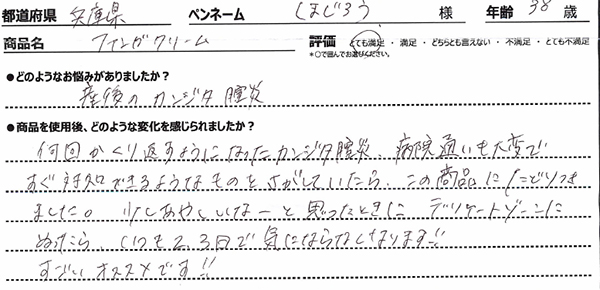 都道府県 兵庫県 ペンネーム しまじろう 様 年齢 38 歳
商品名 ファンガクリーム 評価 とても満足・満足・どちらとも言えない・不満足・とても不満足
*○で囲んでお選びください。
●どのようなお悩みがありましたか?
産後のカンジタ膣炎
●商品を使用後、どのような変化を感じられましたか?
何回かくり返すようになったカンジタ膣炎 病院通いも大変で
すぐ対処できるようなものをさがしていたら、この商品にたどりつき
ました。 少しあやしいなーと思ったときに デリケートゾーンに
ぬったら、いつも2、3日で気にならなくなります!!
すごいオススメです!!